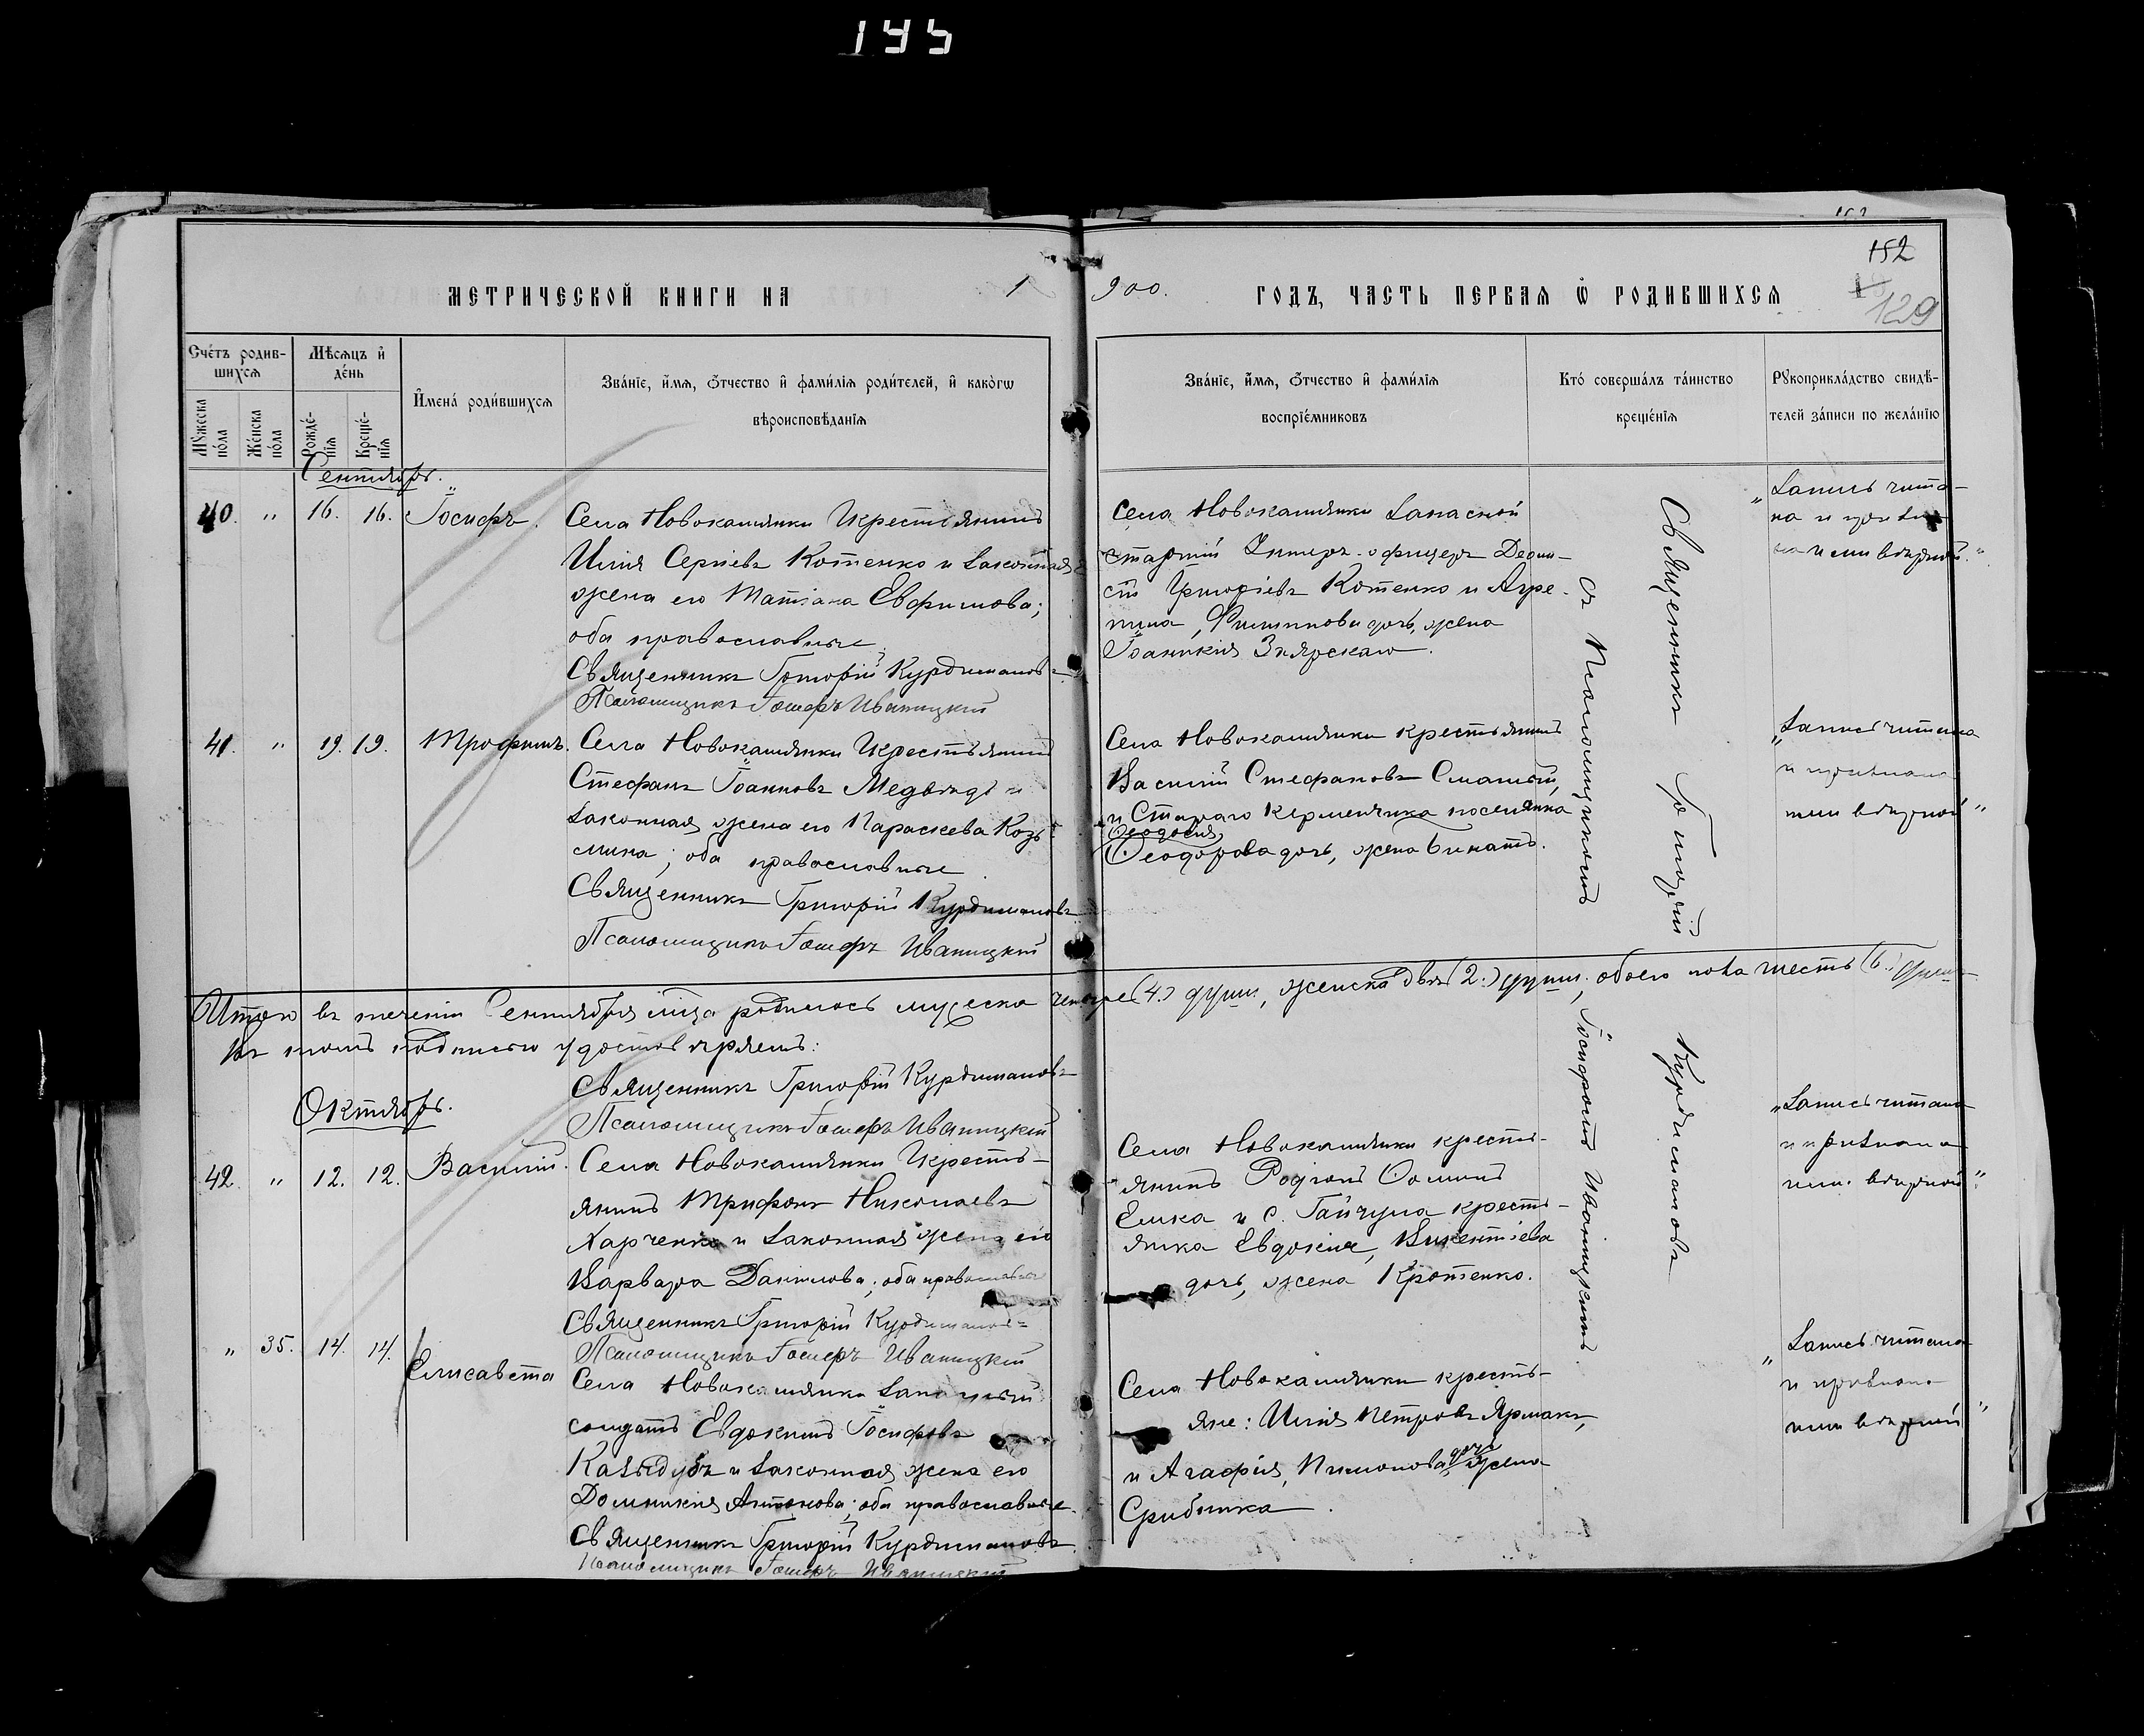 145
152
129
МЕТРИЧЕСКОЙ КНИГИ НА 1900. ГОДЪ, ЧАСТЬ ПЕРВАЯ Ѡ РОДИВШИХСЯ
Счéтъ родив-
шихся
Мѣсяцъ и҆
дéнь
Мꙋжеска
пóла
Жéнска
пóла
Рождé-
нія
Крещé-
нія
И҆менá роди́вшихся
Звáніе, и҆́мя, ѻ҆́тчество и҆ фами́лія роди́телей, и҆ какóгѡ
вѣроисповѣ́данія
Звáніе, и҆́мя, ѻ҆́тчество и҆ фами́лія
воспріéмниковъ
Ктó совершáлъ тáинство
крещéнія
Рꙋкоприклáдство свидѣ́-
телей зáписи по желáнію
Сентябрь.
40. " 16. 16. Іосифъ.
Села Новокаминки Крестьянинъ
Илія Сергіевъ Котенко и законная
жена его Татіана Евфимова;
оба православные
Священникъ Григорій Курдимановъ
Псаломщикъ Іосифъ Иваницкій
Села Новокаминки Запасной
старшій Унтеръ-офицеръ Леон-
тій Григоріевъ Котенко и Агре-
пина, Филиппова дочь, жена
Іоанникія Згярскаго.
"Запись чита-
на и призна-
на ими вѣрной."
41. " 19. 19. Трофимъ.
Села Новокаминки Крестьянинъ
Стефанъ Іоанновъ Медвѣдь и
законная жена его Параскева Козь-
мина; оба православные
Священникъ Григорій Курдимановъ
Псаломщикъ Іосифъ Иваницкій
Села Новокаминки крестьянинъ
Василій Стефановъ Смалый,
и Стараго Керменчика поселянка
Ѳеодосія
Ѳеодорова дочь, жена Бинатъ.
"Запись читана
и признана
ими вѣрной"
Итого въ теченіи Сентября м-ца родилось мужеска четыре (4.) души, женска двѣ (2.) души, обоего пола шесть (6.) душъ
въ томъ подписью удостовѣряемъ:
Священникъ Григорій Курдимановъ
Псаломщикъ Іосифъ Иваницкій
Октябрь.
42. " 12. 12. Василій.
Села Новокаминки Кресть-
янинъ Трифонъ Николаевъ
Харченко и законная жена его
Варвара Даніилова; оба православные
Священникъ Григорій Курдимановъ
Псаломщикъ Іосифъ Иваницкій
Села Новокаминки кресть-
янинъ Родіонъ Ѳоминъ
Емка и с. Гайчула кресть-
янка Евдокія, Викентіева
дочь, жена Кротенко.
"Запись читана
и признана
ими вѣрной"
" 35. 14. 14. Елисавета
Села Новокаминки Запасный
солдатъ Евдокимъ Іосифовъ
Казыдубъ и законная жена его
Домникія Антонова; оба православные.
Священникъ Григорій Курдимановъ
Псаломщикъ Іосифъ Иваницкій
Села Новокаминки кресть-
яне: Илія Петровъ Ярмакъ,
и Агафія, Пимонова дочь жена
Срибника.
"Запись читана
и признана
ими вѣрной"
Священникъ Григорій Курдимановъ
съ Псаломщикомъ Іосифомъ Иваницкимъ.